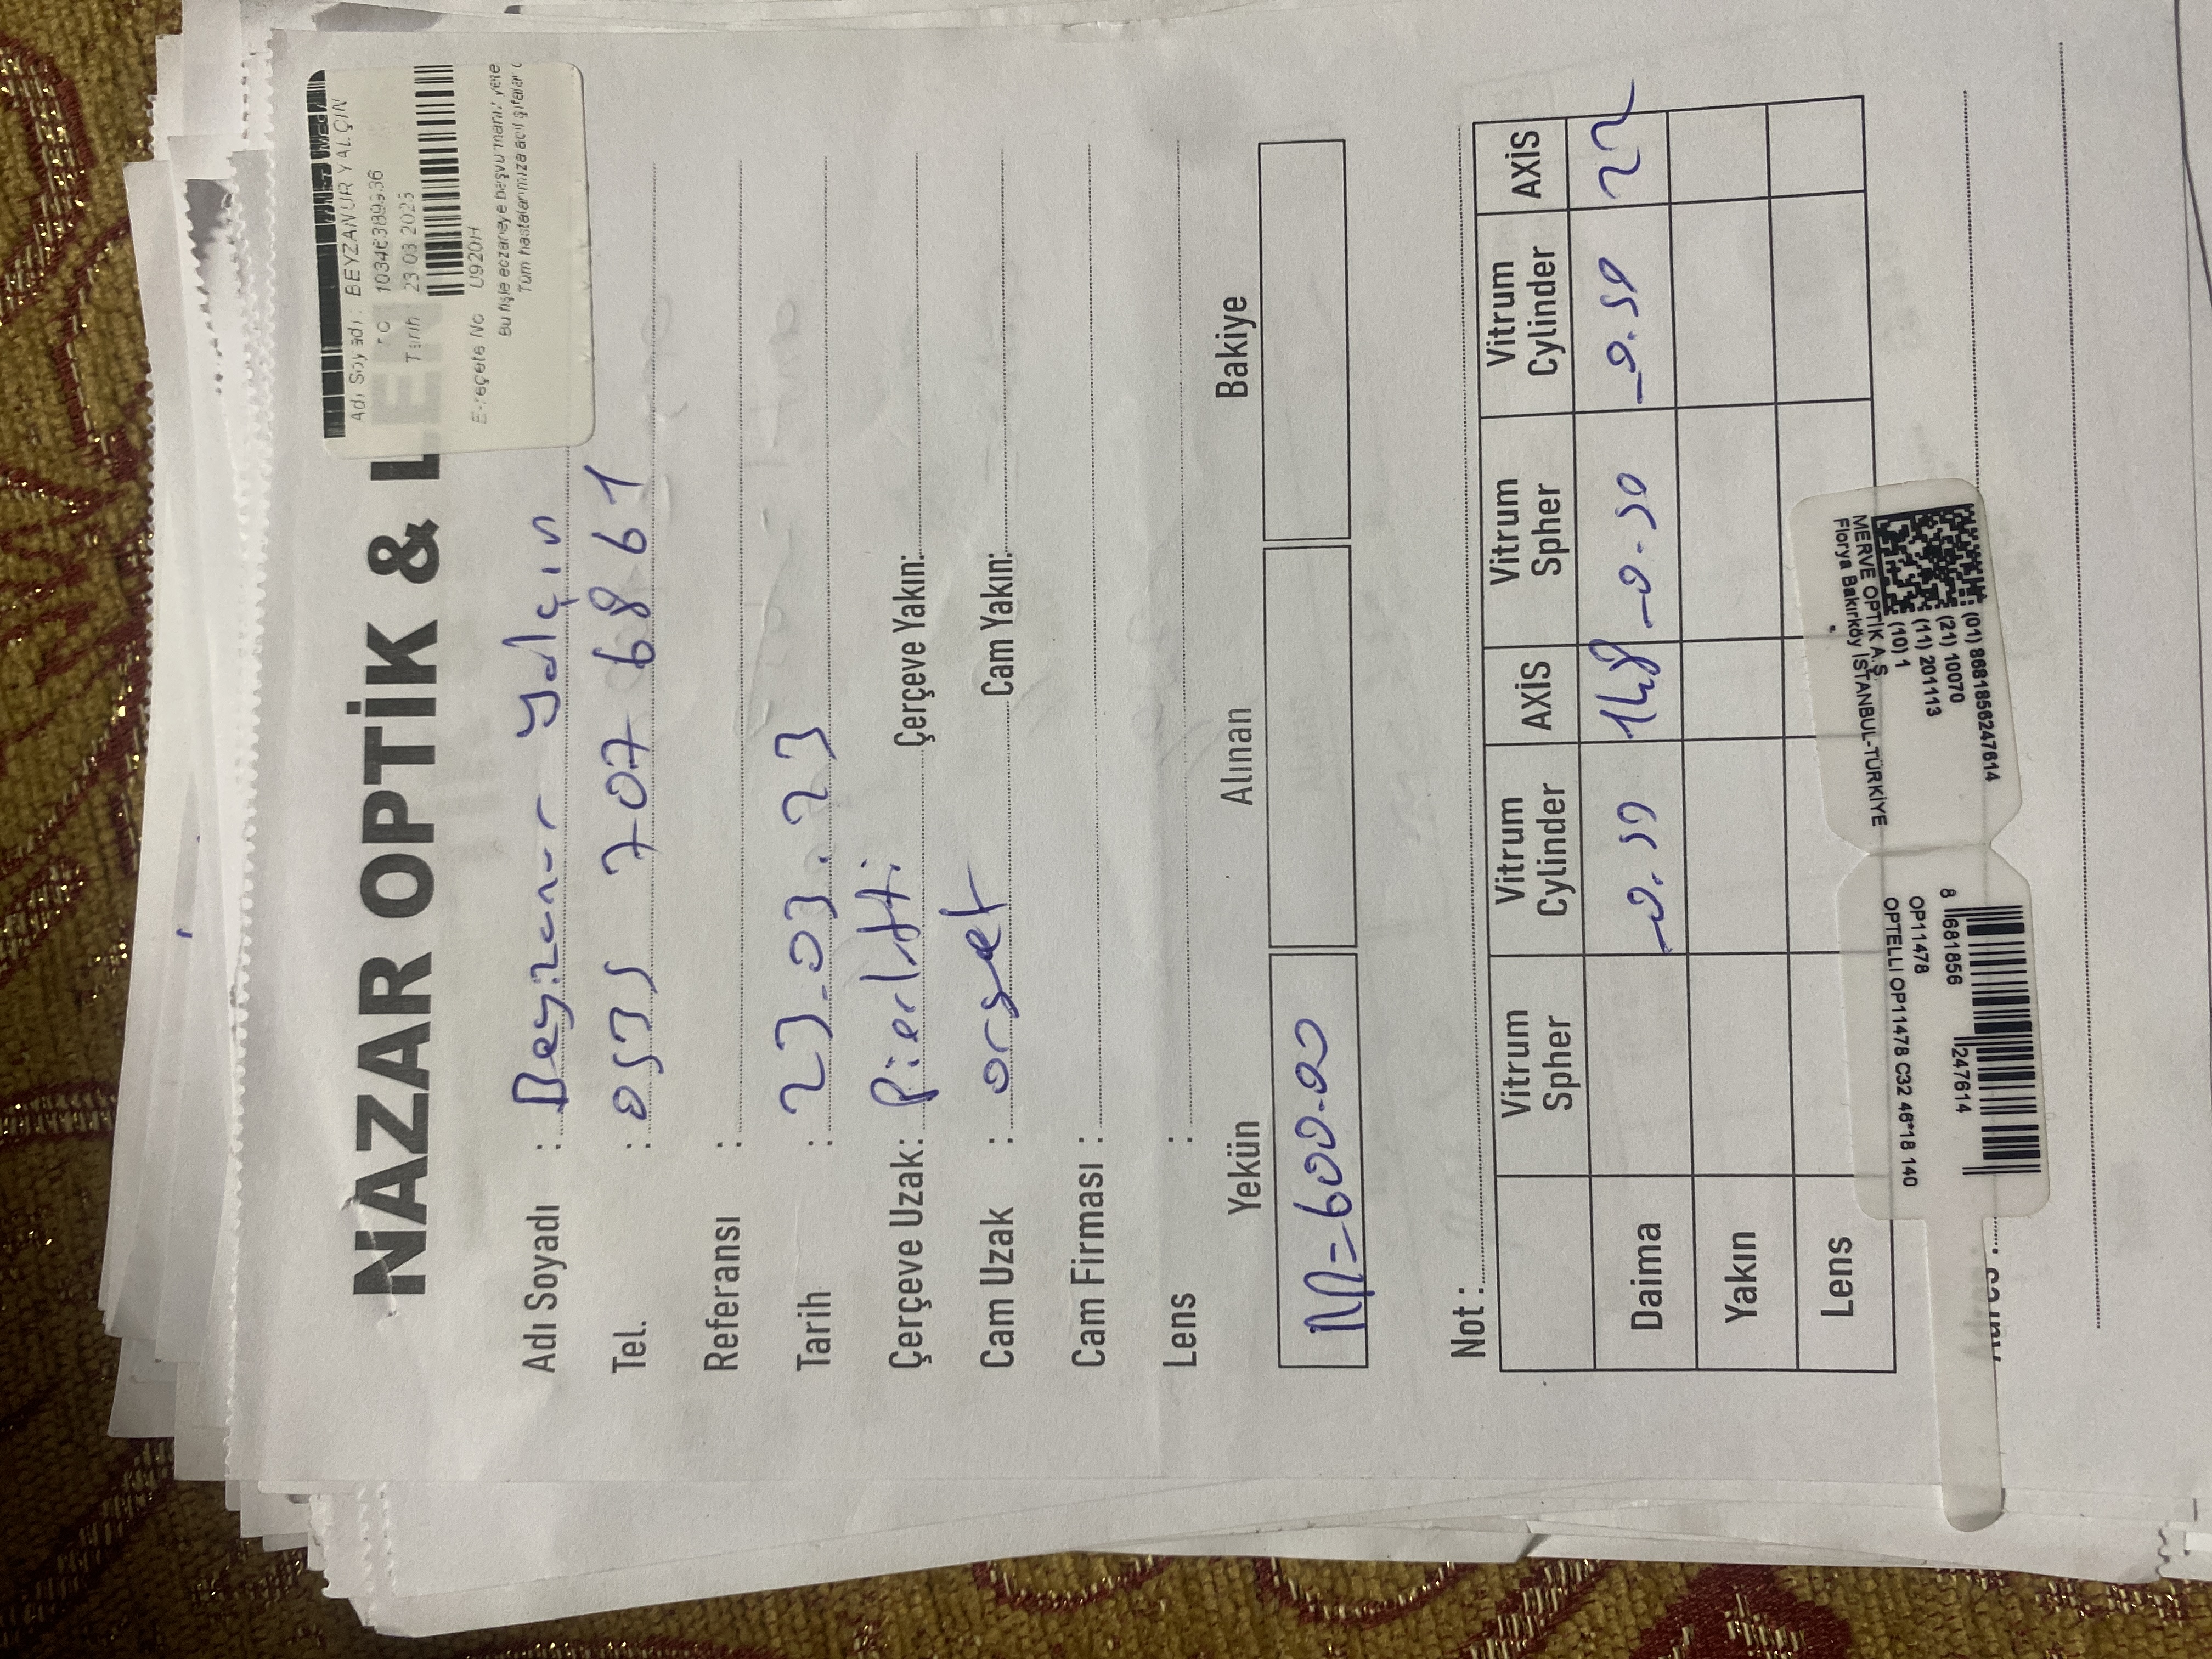 NAZAR OPTİK & LEN
Adı Soyadı : BEYZANUR YALÇIN
10346389936
Tarih 23 03 2023
E-reçete No U920H
Bu fişle eczaneye başvurmanız yete
Tüm hastalarımıza acil şifalar
Adı Soyadı : Beyzanur Yalçın
Tel. : 0535 707 6861
Referansı :
Tarih : 23.03.23
Çerçeve Uzak: Pierlotti Çerçeve Yakın:
Cam Uzak : orset Cam Yakın:
Cam Firması :
Lens :
Yekün Alınan Bakiye
M=600.00
Not :
Vitrum Spher Vitrum Cylinder AXİS Vitrum Spher Vitrum Cylinder AXİS
Daima -0.50 148 -0.50 -0.50 22
Yakın
Lens
OPTELLI OP11478 C32 46*18 140
OP11478
8 681856 247614
MERVE OPTİK A.Ş.
Florya Bakırköy İSTANBUL-TÜRKİYE
(01) 8681856247614
(21) 10070
(11) 201113
(10) 1
Adres :